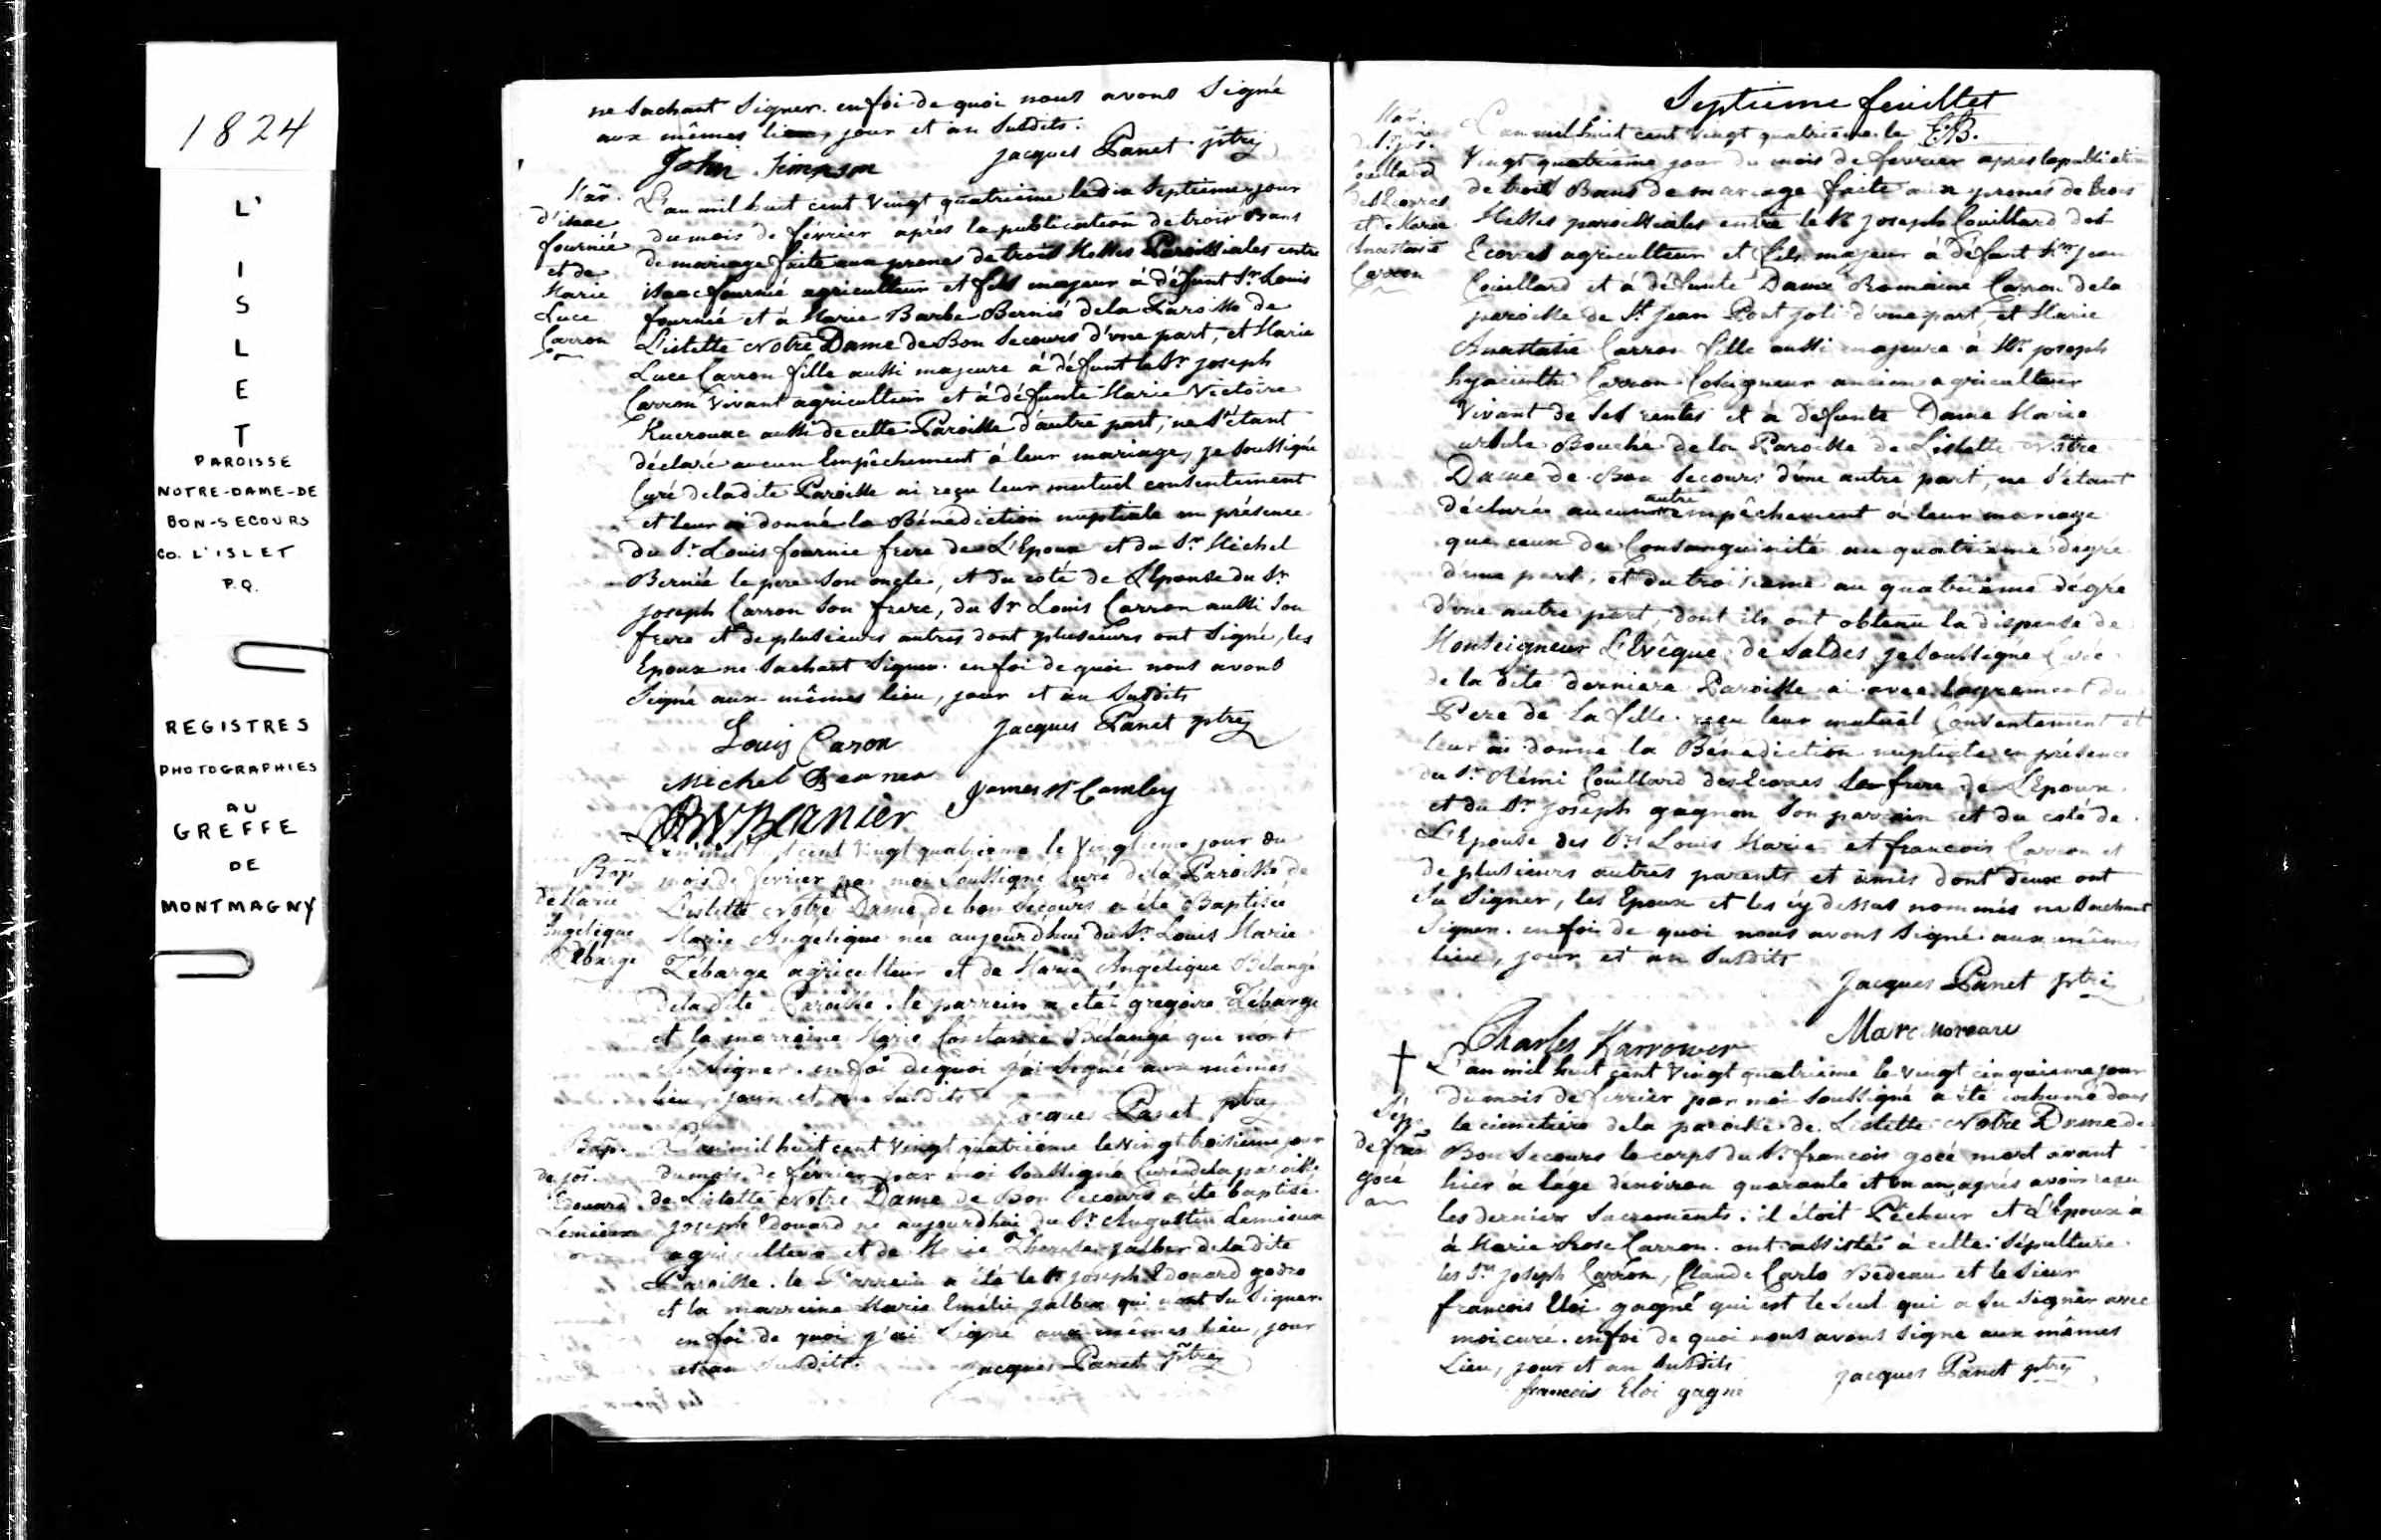 1824
L'
I
S
L
E
T
PAROISSE
NOTRE-DAME-DE
BON-SECOURS
CO. L'ISLET
P.Q.
REGISTRES
PHOTOGRAPHIES
AU
GREFFE
DE
MONTMAGNY
ne Sachant Signer. en foi de quoi nous avons Signé
aux mêmes lieu, jour et an Susdits.
John Simpson
Jacques Panet ptre
Mar.
d'isaac
fournié
et de
Marie
Luce
Carron
L'an mil huit cent Vingt quatrième le dix Septieme jour
du mois de février après la publication de trois Bans
de mariage faite aux prones de trois Messes Paroissiales entre
isaac fournié agriculteur et fils majeur à défunt Sr. Louis
fournié et à Marie Barbe Bernié de la Paroisse de
L'islette Notre Dame de Bon Secours d'une part, et Marie
Luce Carron fille aussi majeure à défunt le Sr. joseph
Carron Vivant agriculteur et à défunte Marie Victoire
Kuerouac aussi de cette Paroisse d'autre part, ne S'étant
déclaré aucun Empêchement à leur mariage, je Soussigné
Curé de la dite Paroisse ai reçu leur mutuel consentement
et leur ai donné la Bénédiction nuptiale en présence
du Sr. Louis fournie frere de L'Epoux et du Sr. Michel
Bernié le pere Son oncle, et du coté de L'Epouse du Sr
joseph Carron Son frere, du Sr Louis Carron aussi Son
frere et de plusieurs autres dont plusieurs ont Signé, les
Epoux ne Sachant Signer. en foi de quoi nous avons
Signé aux mêmes lieu, jour et an Susdits
Louis Caron
Jacques Panet ptre
Michel Bernier
James McCamley
BV Bernier
Bap.
de Marie
Angélique
Lébarge
mil cent Vingt quatrieme le Vingtieme jour du
mois de fevrier par moi Soussigné Curé de la Paroisse de
L'islette Notre Dame de bon Secours a été Baptisée
Marie Angélique née aujourdhui du Sr. Louis Marie
Lébarge agriculteur et de Marie Angélique Bélangé
de la dite Paroisse. le parrein a été gregoire Lébarge
et la marreine Marie Constance Bélangé qui n'ont
Su Signer. en foi de quoi j'ai Signé aux mêmes
lieu, jour et an Susdits
Jacques Panet ptre
Bap.
de jos.
Edouard
Lemieux
L'an mil huit cent Vingt quatrième le vingt troisieme jour
du mois de février par moi Soussigné Curé de la paroisse
de L'islette Notre Dame de Bon Secours a été baptisé
Joseph Edouard né aujourdhui du Sr. Augustin Lemieux
agriculteur et de Marie Therese jalber de la dite
Paroisse. le Parrein a été le Sr joseph Edouard godro
et la marreine Marie Emélie jalber qui n'ont Su Signer.
en foi de quoi j'ai Signé aux mêmes lieu, jour
et an Susdits.
Jacques Panet ptre
Septieme feuillet
Mar.
de Sr. jos.
Couillard
des Ecorres
et Marie
Anastasie
Carron
L'an mil huit cent Vingt quatrieme le
Vingt quatrieme jour du mois de fevrier après la publication
de trois Bans de mariage faite aux prones de trois
Messes paroissiales entre le Sr Joseph Couillard des
Ecorres agriculteur et fils majeur à défunt Sr. Jean
Couillard et à défunte Dame Romaine Carron de la
paroisse de St. Jean Port joli d'une part, et Marie
Anastasie Carron fille aussi majeure à Mr. joseph
hyacinthe Carron Coseigneur ancien agriculteur
Vivant de Ses rentes et à défunte Dame Marie
ursule Bouche de la Paroisse de L'islette Notre
Dame de Bon Secours d'une autre part, ne S'étant
autre
déclaré aucun empêchement à leur mariage
que ceux de Consanguinité au quatrieme dégré
d'une part, et du troisieme au quatrième dégré
d'une autre part, dont ils ont obtenu la dispense de
Monseigneur L'Evêque de Saldes, je Soussigné Curé
de la dite derniere Paroisse ai avec l'agrement du
Pere de la fille reçu leur mutuel Consentement et
leur ai donné la Bénédiction nuptiale en présence
du Sr. Rémi Couillard des Ecorres frere de L'Epoux
et du Sr. joseph gagnon Son parrain et du coté de
L'Epouse des Srs Louis Marie et francois Carron et
de plusieurs autres parents et amis dont deux ont
Su Signer, les Epoux et les cy dessus nommés ne Sachant
Signer. en foi de quoi nous avons Signé aux mêmes
lieu, jour et an Susdits
Jacques Panet ptre
Charles Harrower
Sép.
de fran
gocé
L'an mil huit cent Vingt quatrieme le vingt cinquieme jour
du mois de fevrier par moi Soussigné a été inhumé dans
le cimetiere de la paroisse de L'islette Notre Dame de
Bon Secours le corps du Sr. francois gocé mort avant
hier à l'âge d'environ quarante et un an, après avoir reçu
les derniers Sacrements. il étoit Pêcheur et L'Epoux à
à Marie Rose Carron. ont assisté à cette Sépulture
les Srs Joseph Carron, Claude Carlo Bedeau et le Sieur
francois Eloi gagné qui est le Seul qui a Su Signer avec
moi curé. en foi de quoi nous avons Signé aux mêmes
Lieu, jour et an Susdits
Jacques Panet ptre
francois Eloi gagné